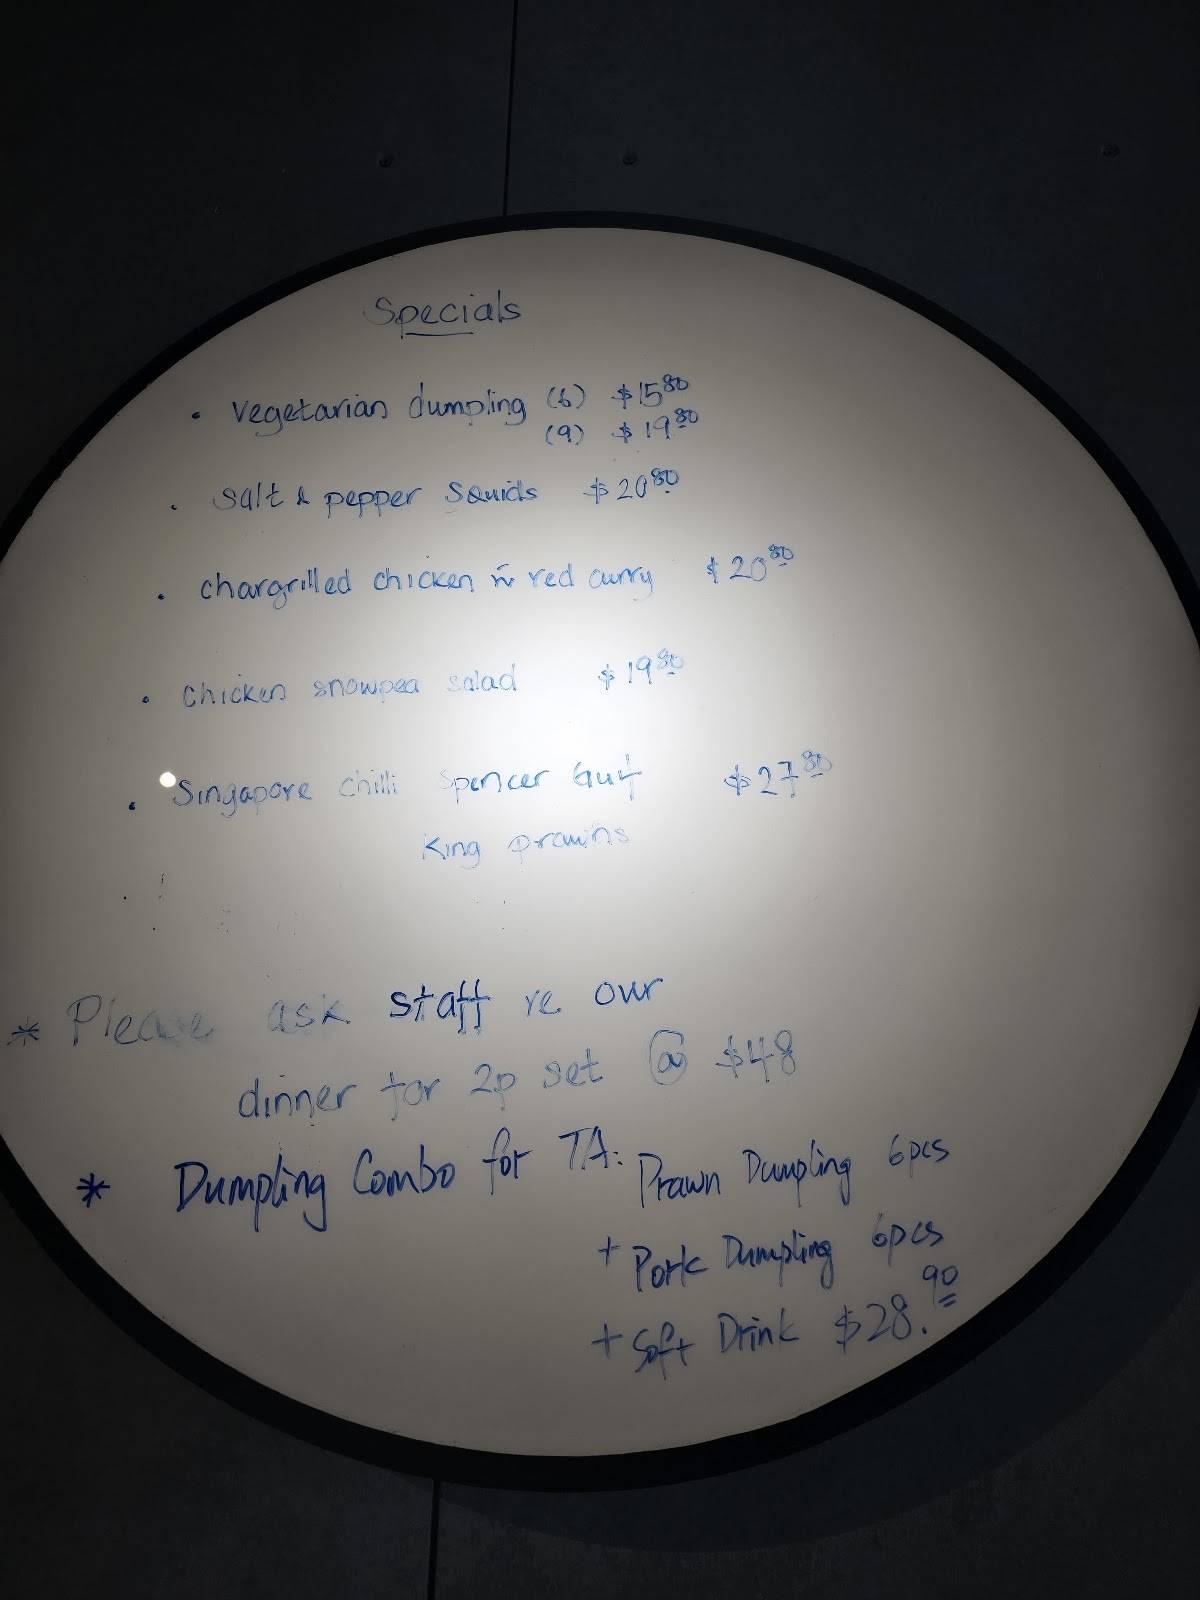 Specials
• Vegetarian dumpling (6) $15.80
(9) $19.80
• Salt & pepper Squids $20.80
• Chargrilled chicken w red curry $20.80
• Chicken snowpea salad $19.80
• Singapore chilli Spencer Gulf $27.80
King prawns
* Please ask staff re our
dinner for 2p set @ $48
* Dumpling Combo for TA: Prawn Dumpling 6pcs
+ Pork Dumpling 6pcs
+ Soft Drink $28.90